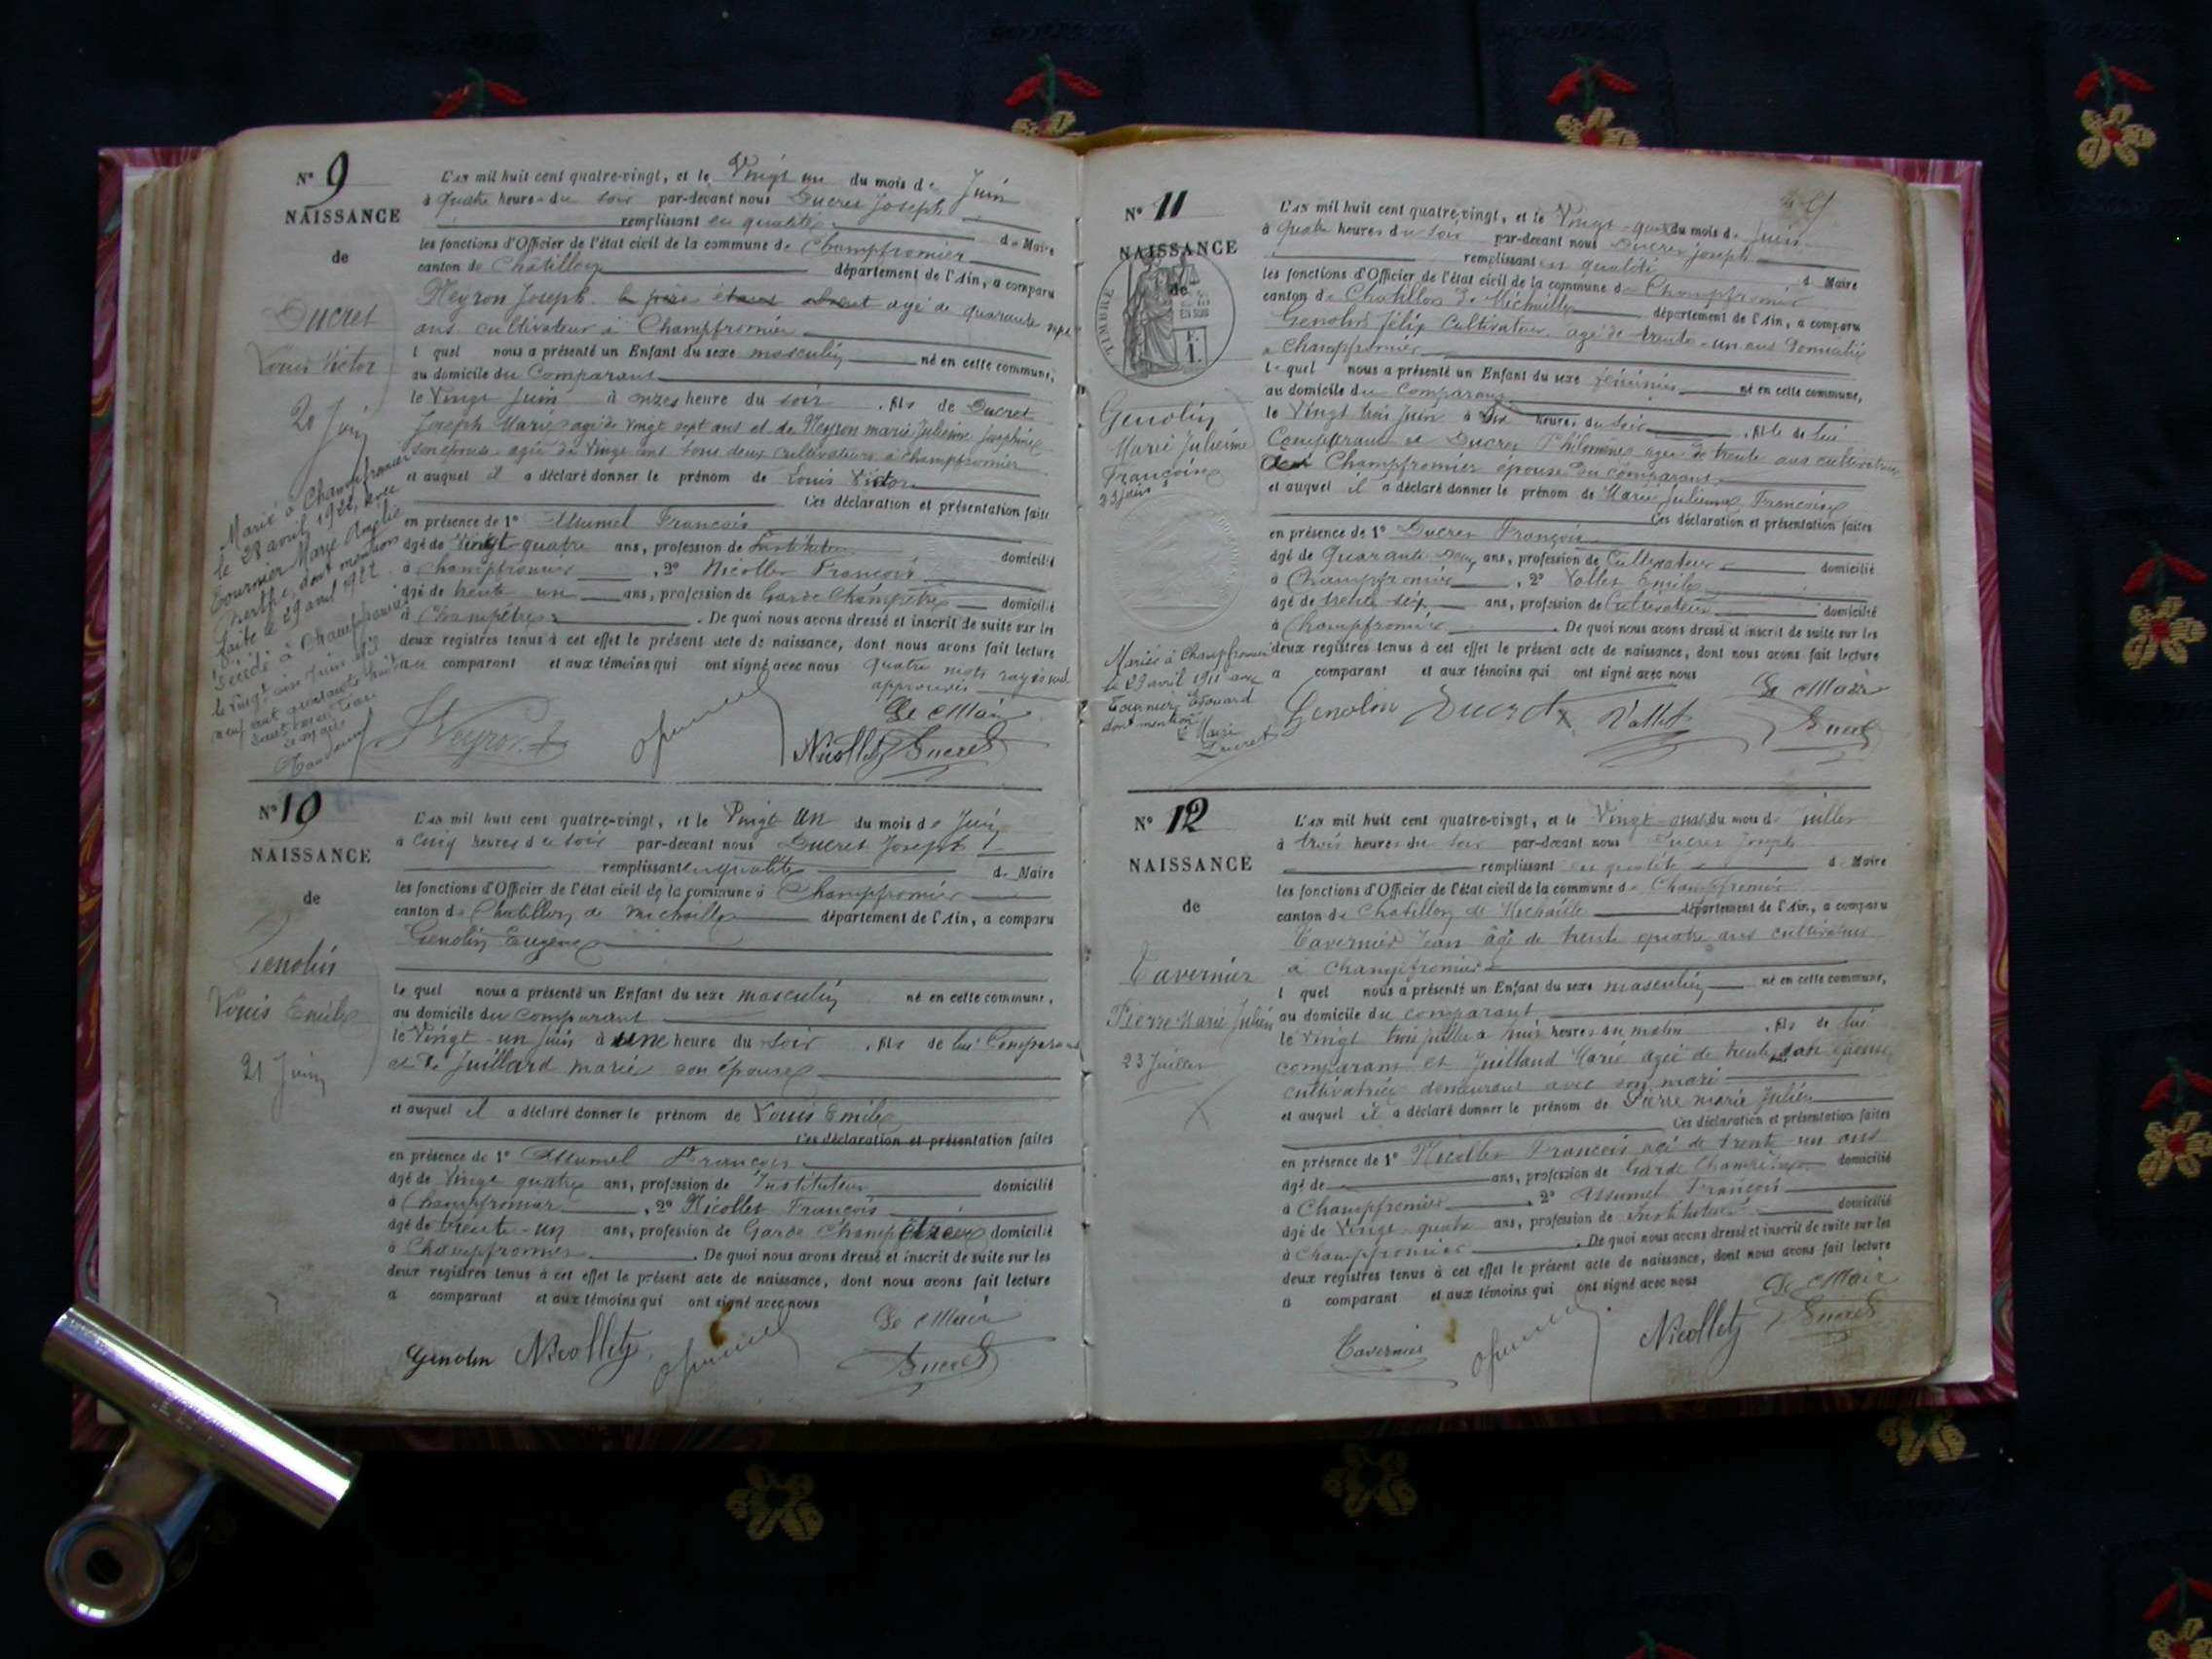 N° 9
NAISSANCE
de
Ducret
Louis Victor
20 Juin
Marié à Champfromier
le 28 avril 1921, avec
Tournier Marie Amélie
Berthe, dont mention
faite le 29 avril 1921
Décédé à Champfromier
le vingt six Juin mil
neuf cent quarante huit
L'an mil huit cent quatre-vingt, et le Vingt un du mois de Juin
à quatre heures du soir par-devant nous Ducret Joseph
remplissant en qualité de Maire
les fonctions d'Officier de l'état civil de la commune de Champfromier
canton de Châtillon département de l'Ain, a comparu
Neyron Joseph le père étant absent agé de quarante sept
ans cultivateur à Champfromier
l quel nous a présenté un Enfant du sexe masculin né en cette commune,
au domicile du Comparant
le Vingt Juin à onze heure du soir , fils de Ducret
Joseph Marie agé de vingt sept ans et de Neyron marie Julienne Joséphine
son épouse agée de vingt ans tous deux cultivateurs à Champfromier
et auquel il a déclaré donner le prénom de Louis Victor
Ces déclaration et présentation faite
en présence de 1° Assumel François
âgé de Vingt quatre ans, profession de Instituteur domicilié
à Champfromier , 2° Nicollet François
âgé de trente un ans, profession de Garde Champêtre domicilié
à Champêtre . De quoi nous avons dressé et inscrit de suite sur les
deux registres tenus à cet effet le présent acte de naissance, dont nous avons fait lecture
au comparant et aux témoins qui ont signé avec nous quatre mots rayés nul
approuvés
Le Maire
Neyron J Nicollet Ducret
N° 10
NAISSANCE
de
Genolin
Louis Emile
21 Juin
L'an mil huit cent quatre-vingt, et le Vingt un du mois de Juin
à cinq heures du soir par-devant nous Ducret Joseph
remplissant en qualité de Maire
les fonctions d'Officier de l'état civil de la commune de Champfromier
canton de Chatillon de michaille département de l'Ain, a comparu
Genolin Eugène
le quel nous a présenté un Enfant du sexe masculin né en cette commune,
au domicile du comparant
le Vingt-un Juin à une heure du soir , fils de lui Comparant
et de Juillard marie son épouse
et auquel il a déclaré donner le prénom de Louis Emile
Ces déclaration et présentation faites
en présence de 1° Assumel François
âgé de Vingt quatre ans, profession de Instituteur domicilié
à Champfromier , 2° Nicollet François
âgé de trente-un ans, profession de Garde Champêtre domicilié
à Champfromier . De quoi nous avons dressé et inscrit de suite sur les
deux registres tenus à cet effet le présent acte de naissance, dont nous avons fait lecture
a comparant et aux témoins qui ont signé avec nous
Le Maire
Genolin Nicollet Ducret
N° 11
NAISSANCE
de
TIMBRE
Genolin
Marie Julienne
Françoise
23 juin
Mariée à Champfromier
le 29 avril 1911 avec
Tournier Edouard
dont mention
Le Maire
Ducret
L'an mil huit cent quatre-vingt, et le Vingt-quatre du mois de Juin
à quatre heures du soir par-devant nous Ducret Joseph
remplissant en qualité de Maire
les fonctions d'Officier de l'état civil de la commune de Champfromier
canton de Chatillon de Michaille département de l'Ain, a comparu
Genolin Félix Cultivateur agé de trente-un ans domicilié
a Champfromier
le quel nous a présenté un Enfant du sexe féminin né en cette commune,
au domicile du comparant
le Vingt trois Juin à dix heures du soir , fille de lui
Comparant et Ducret Philomène agée de trente ans cultivatrice
à Champfromier épouse du comparant
et auquel il a déclaré donner le prénom de Marie Julienne Françoise
Ces déclaration et présentation faites
en présence de 1° Ducret François
âgé de quarante deux ans, profession de Cultivateur domicilié
à Champfromier , 2° Vallet Emile
âgé de trente six ans, profession de Cultivateur domicilié
à Champfromier . De quoi nous avons dressé et inscrit de suite sur les
deux registres tenus à cet effet le présent acte de naissance, dont nous avons fait lecture
a comparant et aux témoins qui ont signé avec nous
Le Maire
Genolin Ducret Vallet Ducret
N° 12
NAISSANCE
de
Tavernier
Pierre Marie Julien
23 Juillet
L'an mil huit cent quatre-vingt, et le Vingt-quatre du mois de Juillet
à trois heures du soir par-devant nous Ducret Joseph
remplissant en qualité de Maire
les fonctions d'Officier de l'état civil de la commune de Champfromier
canton de Chatillon de Michaille département de l'Ain, a comparu
Tavernier Jean âgé de trente quatre ans cultivateur
à Champfromier
l quel nous a présenté un Enfant du sexe masculin né en cette commune,
au domicile du comparant
le vingt trois juillet a huit heures du matin , fils de lui
comparant et Juilland Marie agée de trente ans épouse
cultivatrice demeurant avec son mari
et auquel il a déclaré donner le prénom de Pierre marie Julien
Ces déclaration et présentation faites
en présence de 1° Nicollet François agé de trente-un ans
âgé de ans, profession de Garde Champêtre domicilié
à Champfromier , 2° Assumel François
âgé de Vingt quatre ans, profession de Instituteur domicilié
à Champfromier . De quoi nous avons dressé et inscrit de suite sur les
deux registres tenus à cet effet le présent acte de naissance, dont nous avons fait lecture
a comparant et aux témoins qui ont signé avec nous
Le Maire
Tavernier Nicollet Ducret